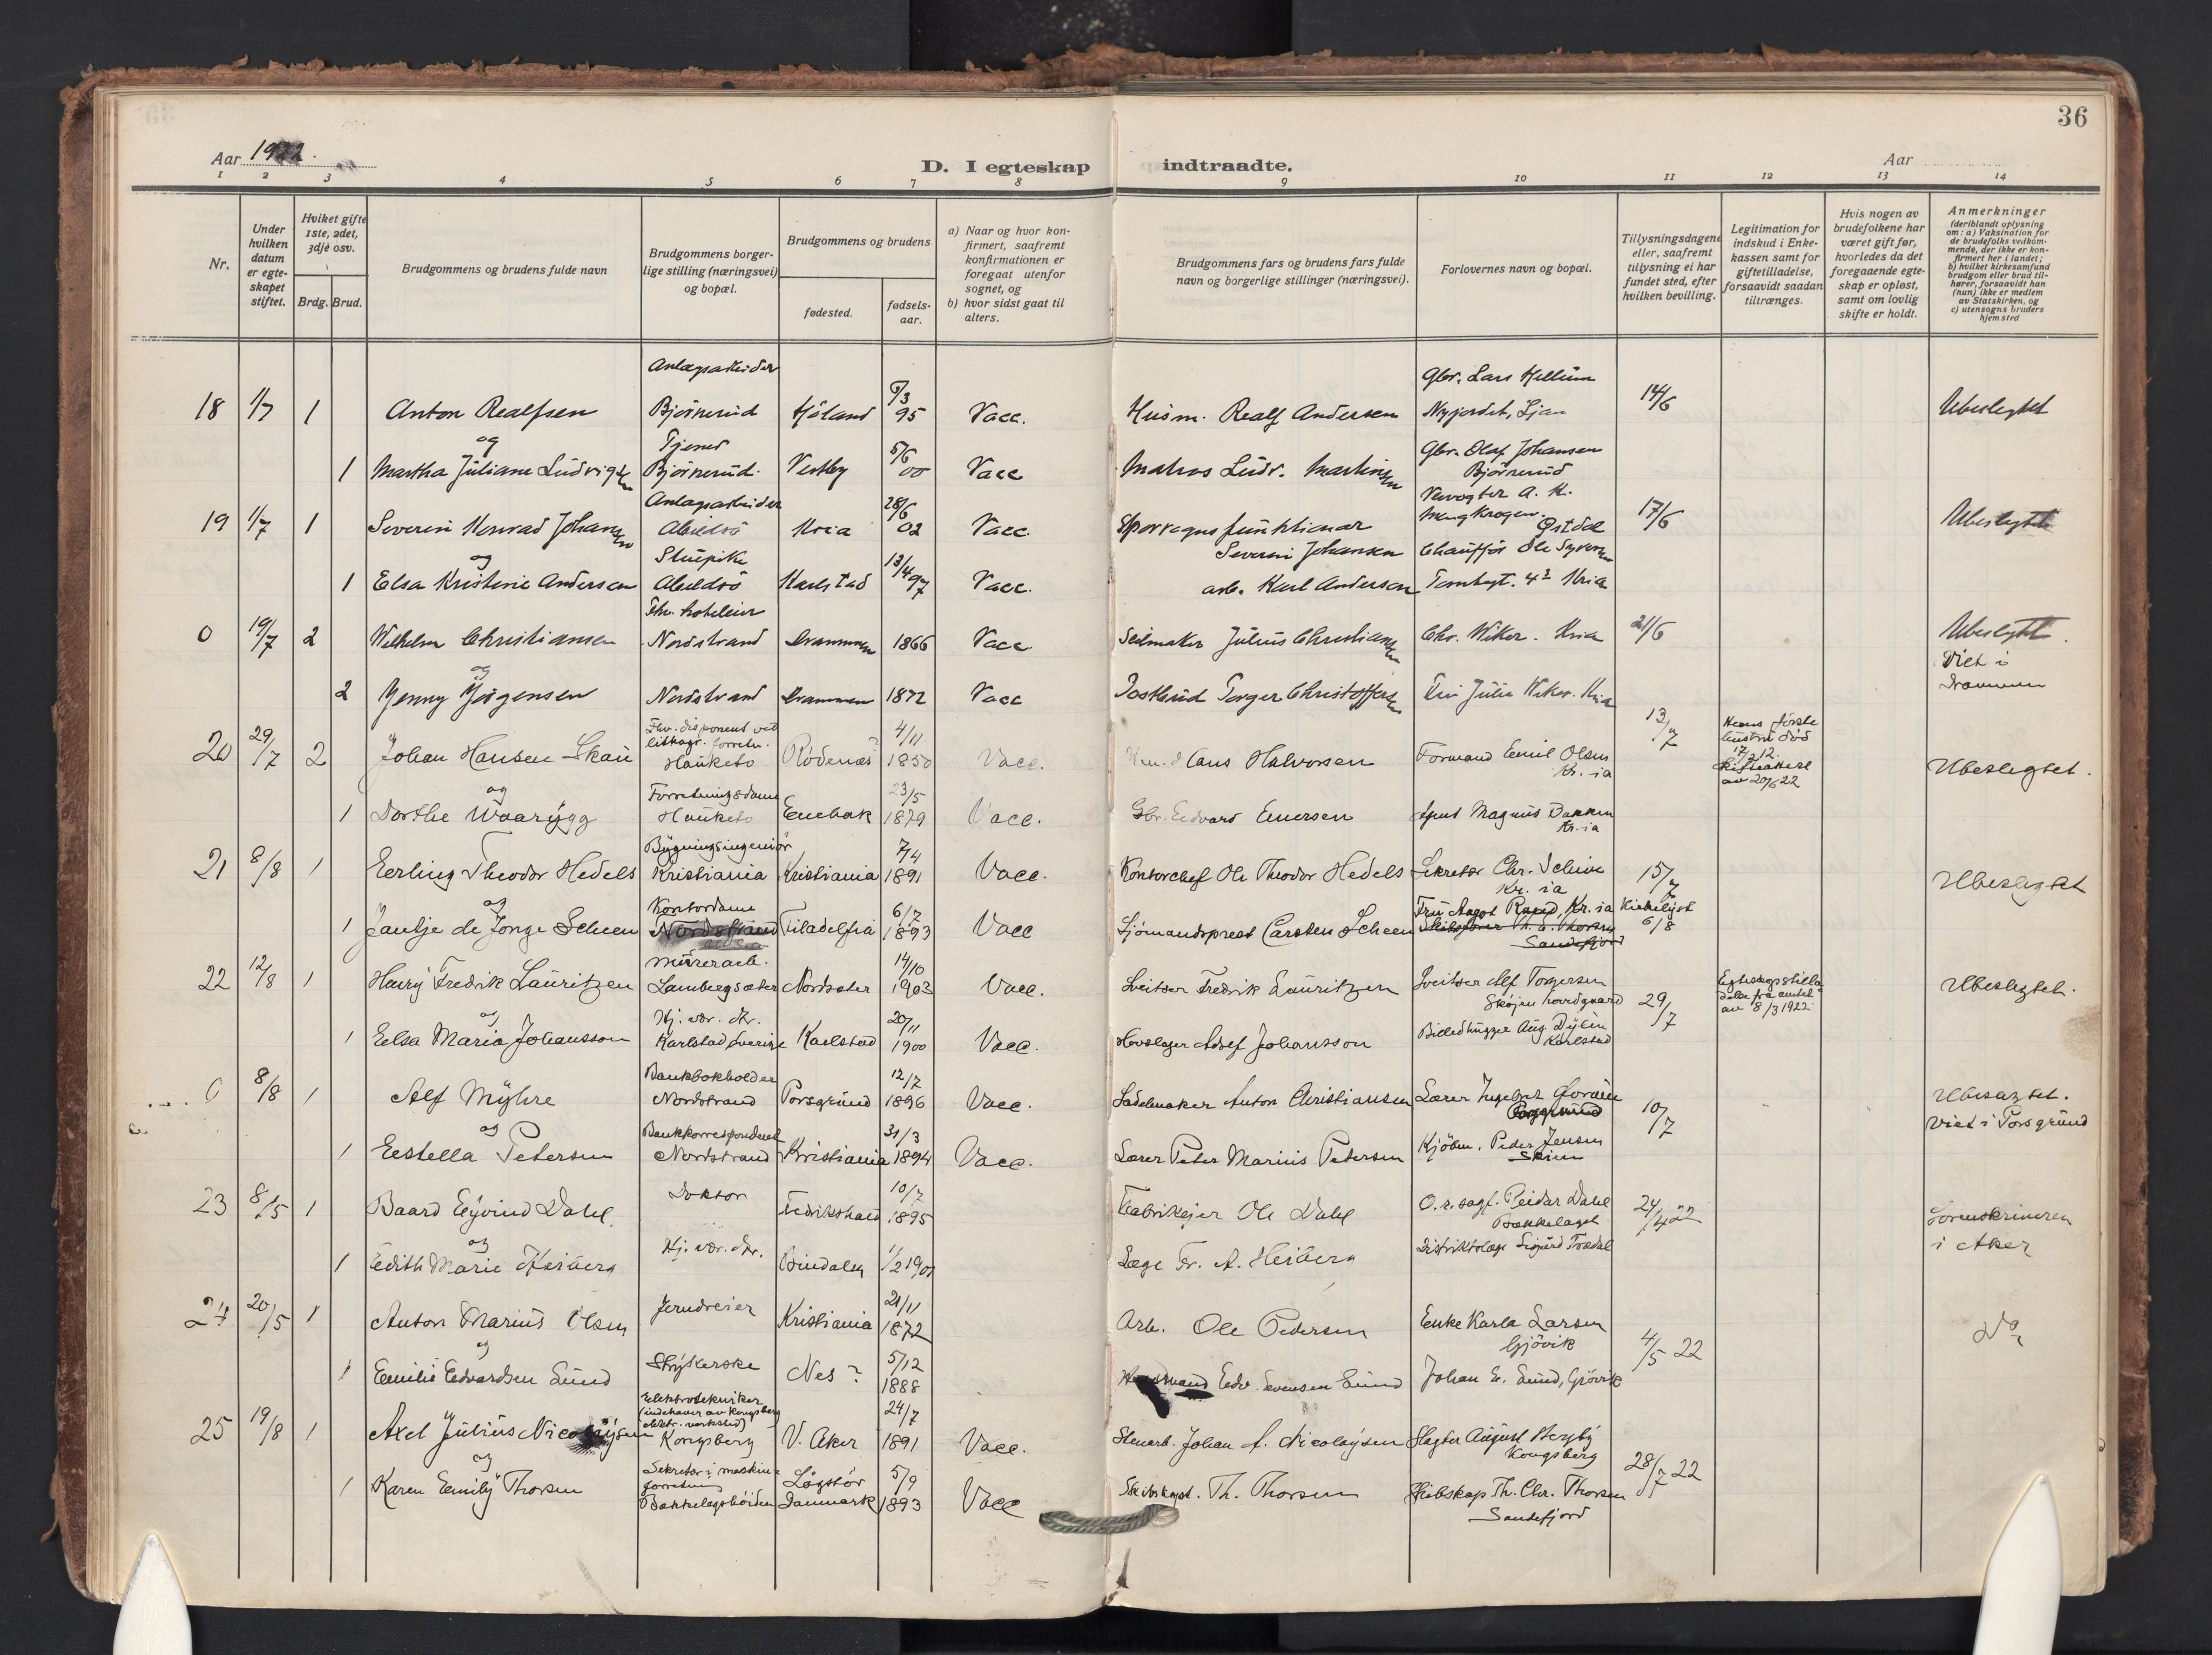 36
Aar 1922.
D. I egteskap indtraadte.
Aar
1 2 3 4 5 6 7 8 9 10 11 12 13 14
Nr.
Under hvilken datum er egte-skapet stiftet.
Hviket gifte 1ste, 2det, 3dje osv.
Brdg. Brud.
Brudgommens og brudens fulde navn
Brudgommens borger-lige stilling (næringsvei) og bopæl.
Brudgommens og brudens
fødested.
fødsels-aar.
a) Naar og hvor kon-firmert, saafremt konfirmationen er foregaat utenfor sognet, og
b) hvor sidst gaat til alters.
Brudgommens fars og brudens fars fulde navn og borgerlige stillinger (næringsvei).
Forlovernes navn og bopæl.
Tillysningsdagene eller, saafremt tillysning ei har fundet sted, efter hvilken bevilling.
Legitimation for indskud i Enke-kassen samt for giftetilladelse, forsaavidt saadan tiltrænges.
Hvis nogen av brudefolkene har været gift før, hvorledes da det foregaaende egte-skap er opløst, samt om lovlig skifte er holdt.
Anmerkninger (deriblandt oplysning om: a) Vaksination for de brudefolks vedkom-mende, der ikke er kon-firmert her i landet; b) hvilket kirkesamfund brudgom eller brud til-hører, forsaavidt han (hun) ikke er medlem av Statskirken, og c) utensogns bruders hjemsted
18 1/7 1 Anton Realfsen Anlægsarbeider Bjørnerud Høland 8/3 95 Vacc. Husm. Realf Andersen Gbr. Lars Hellum Nyjordet, Ljan 14/6 Ubeslegtet
og
1 Martha Juliane Ludvigsen Tjener Bjørnerud. Vestby 5/6 00 Vacc Matros Ludv. Martinsen Gbr. Olaf Johansen Bjørnerud
19 1/7 1 Severin Konrad Johansen Anlagsarbeider Abildsø Kria 28/6 02 Vacc. Sporvognsfunktionær Severin Johansen Vervogter A. K. Østdal 17/6 Ubeslegtet
og
1 Elsa Kristine Andersen Stuepike Abildsø Karlstad 13/4 97 Vacc. arb. Karl Andersen Chauffør Ole Syversen Tomtegt. 4 Kria
0 19/7 2 Wilhelm Christiansen Fhv. hotelier Nordstrand Drammen 1866 Vacc Seilmaker Julius Christiansen Chr. Wiker. Kria 21/6 Ubeslegtet. Viet i Drammen
og
2 Jenny Jørgensen Nordstrand Drammen 1872 Vacc Postbud Torger Christoffersen Fru Julie Wiker. Kria
20 29/7 2 Johan Hansen Skau Fhv. disponent ved Hauketo Rødenæs? 4/11 1850 Vacc. Hans Halvorsen Formand Emil Olsen Kr.ia 13/7 Hans første hustru død 17/2 12. Skifteattest av 20/6 22 Ubeslegtet.
og
1 Dorthe Waarügg Forretningsdame Hauketo Enebak 23/5 1879 Vacc. Gbr. Edvard Emersen Magnus Bakken Kr.ia
21 8/8 1 Erling Theodor Hedels Bygningsingeniør Kristiania Kristiania 7/4 1891 Vacc. Kontorchef Ole Theodor Hedels Sekretær Chr. Schive Kr.ia 15/7 Ubeslegtet
og
1 Jantje de Jonge Scheen Kontordame Nordstrand Filadelfia 6/7 1893 Vacc Sjømandsprest Carsten Scheen Fru Aagot Kr.ia Skibsfører Th. Thorsen Sandefjord Kirkelyst 6/8
22 12/8 1 Harry Fredrik Lauritzen Murerarb. Lambergsæter Nordsæter 14/10 1903 Vacc. Sveitser Fredrik Lauritzen Sveitser Alf Torgersen Skøjen hovedgaard 29/7 Egteskapstilladelse fra amtet av 8/3 1922. Ubeslegtet.
og
1 Elsa Maria Johansson Hj. vær. dtr. Karlstad, Sverige Karlstad 20/11 1900 Vacc. Hovslager Adolf Johansson Billedhugger Aug. Dylén Karlstad
0 8/8 1 Alf Myhre Bankbokholder Nordstrand Porsgrund 12/7 1896 Vacc. Sadelmaker Anton Christiansen Lærer Ingebret Porsgrund 10/7 Ubeslegtet. Viet i Porsgrund
og
1 Estella Petersen Bankkorrespondent Nordstrand Kristiania 31/3 1894 Vacc. Lærer Peter Marius Petersen Kjøbm. Peder Jensen Skien
23 8/5 1 Baard Eyvind Dahl Doktor Fredrikshald 10/7 1895 Fabrikejer Ole Dahl O.r.sagf. Reidar Dahl Bækkelaget 24/4 22 Sorenskriveren i Aker
og
1 Edith Marie Heiberg Hj. vær. dtr. Bindalen 1/2 1901 Læge Fr. A. Heiberg Distriktslæge Sigurd Trædal
24 20/5 1 Anton Marius Olsen Jerndreier Kristiania 21/11 1872 Arb. Ole Pedersen Enke Karla Larsen Gjøvik 4/5 22 Do
og
1 Emilie Edvardsen Lund Strykerske Nes? 5/12 1888 Edv. Evensen Lund Johan E. Lund, Gjøvik
25 19/8 1 Axel Julius Nicolaysen Elektrotekniker (indehaver av Kongsberg elektr. verksted) Kongsberg V. Aker 24/7 1891 Vacc. Stenarb. Johan A. Nicolaysen Slagter August Bergby Kongsberg 28/7 22
og
1 Karen Emily Thorsen Sekretær i maskinforretning Bækkelagshøiden Løgstør Danmark 5/9 1893 Vacc Skibskapt. Th. Thorsen Skibskap. Th. Chr. Thorsen Sandefjord